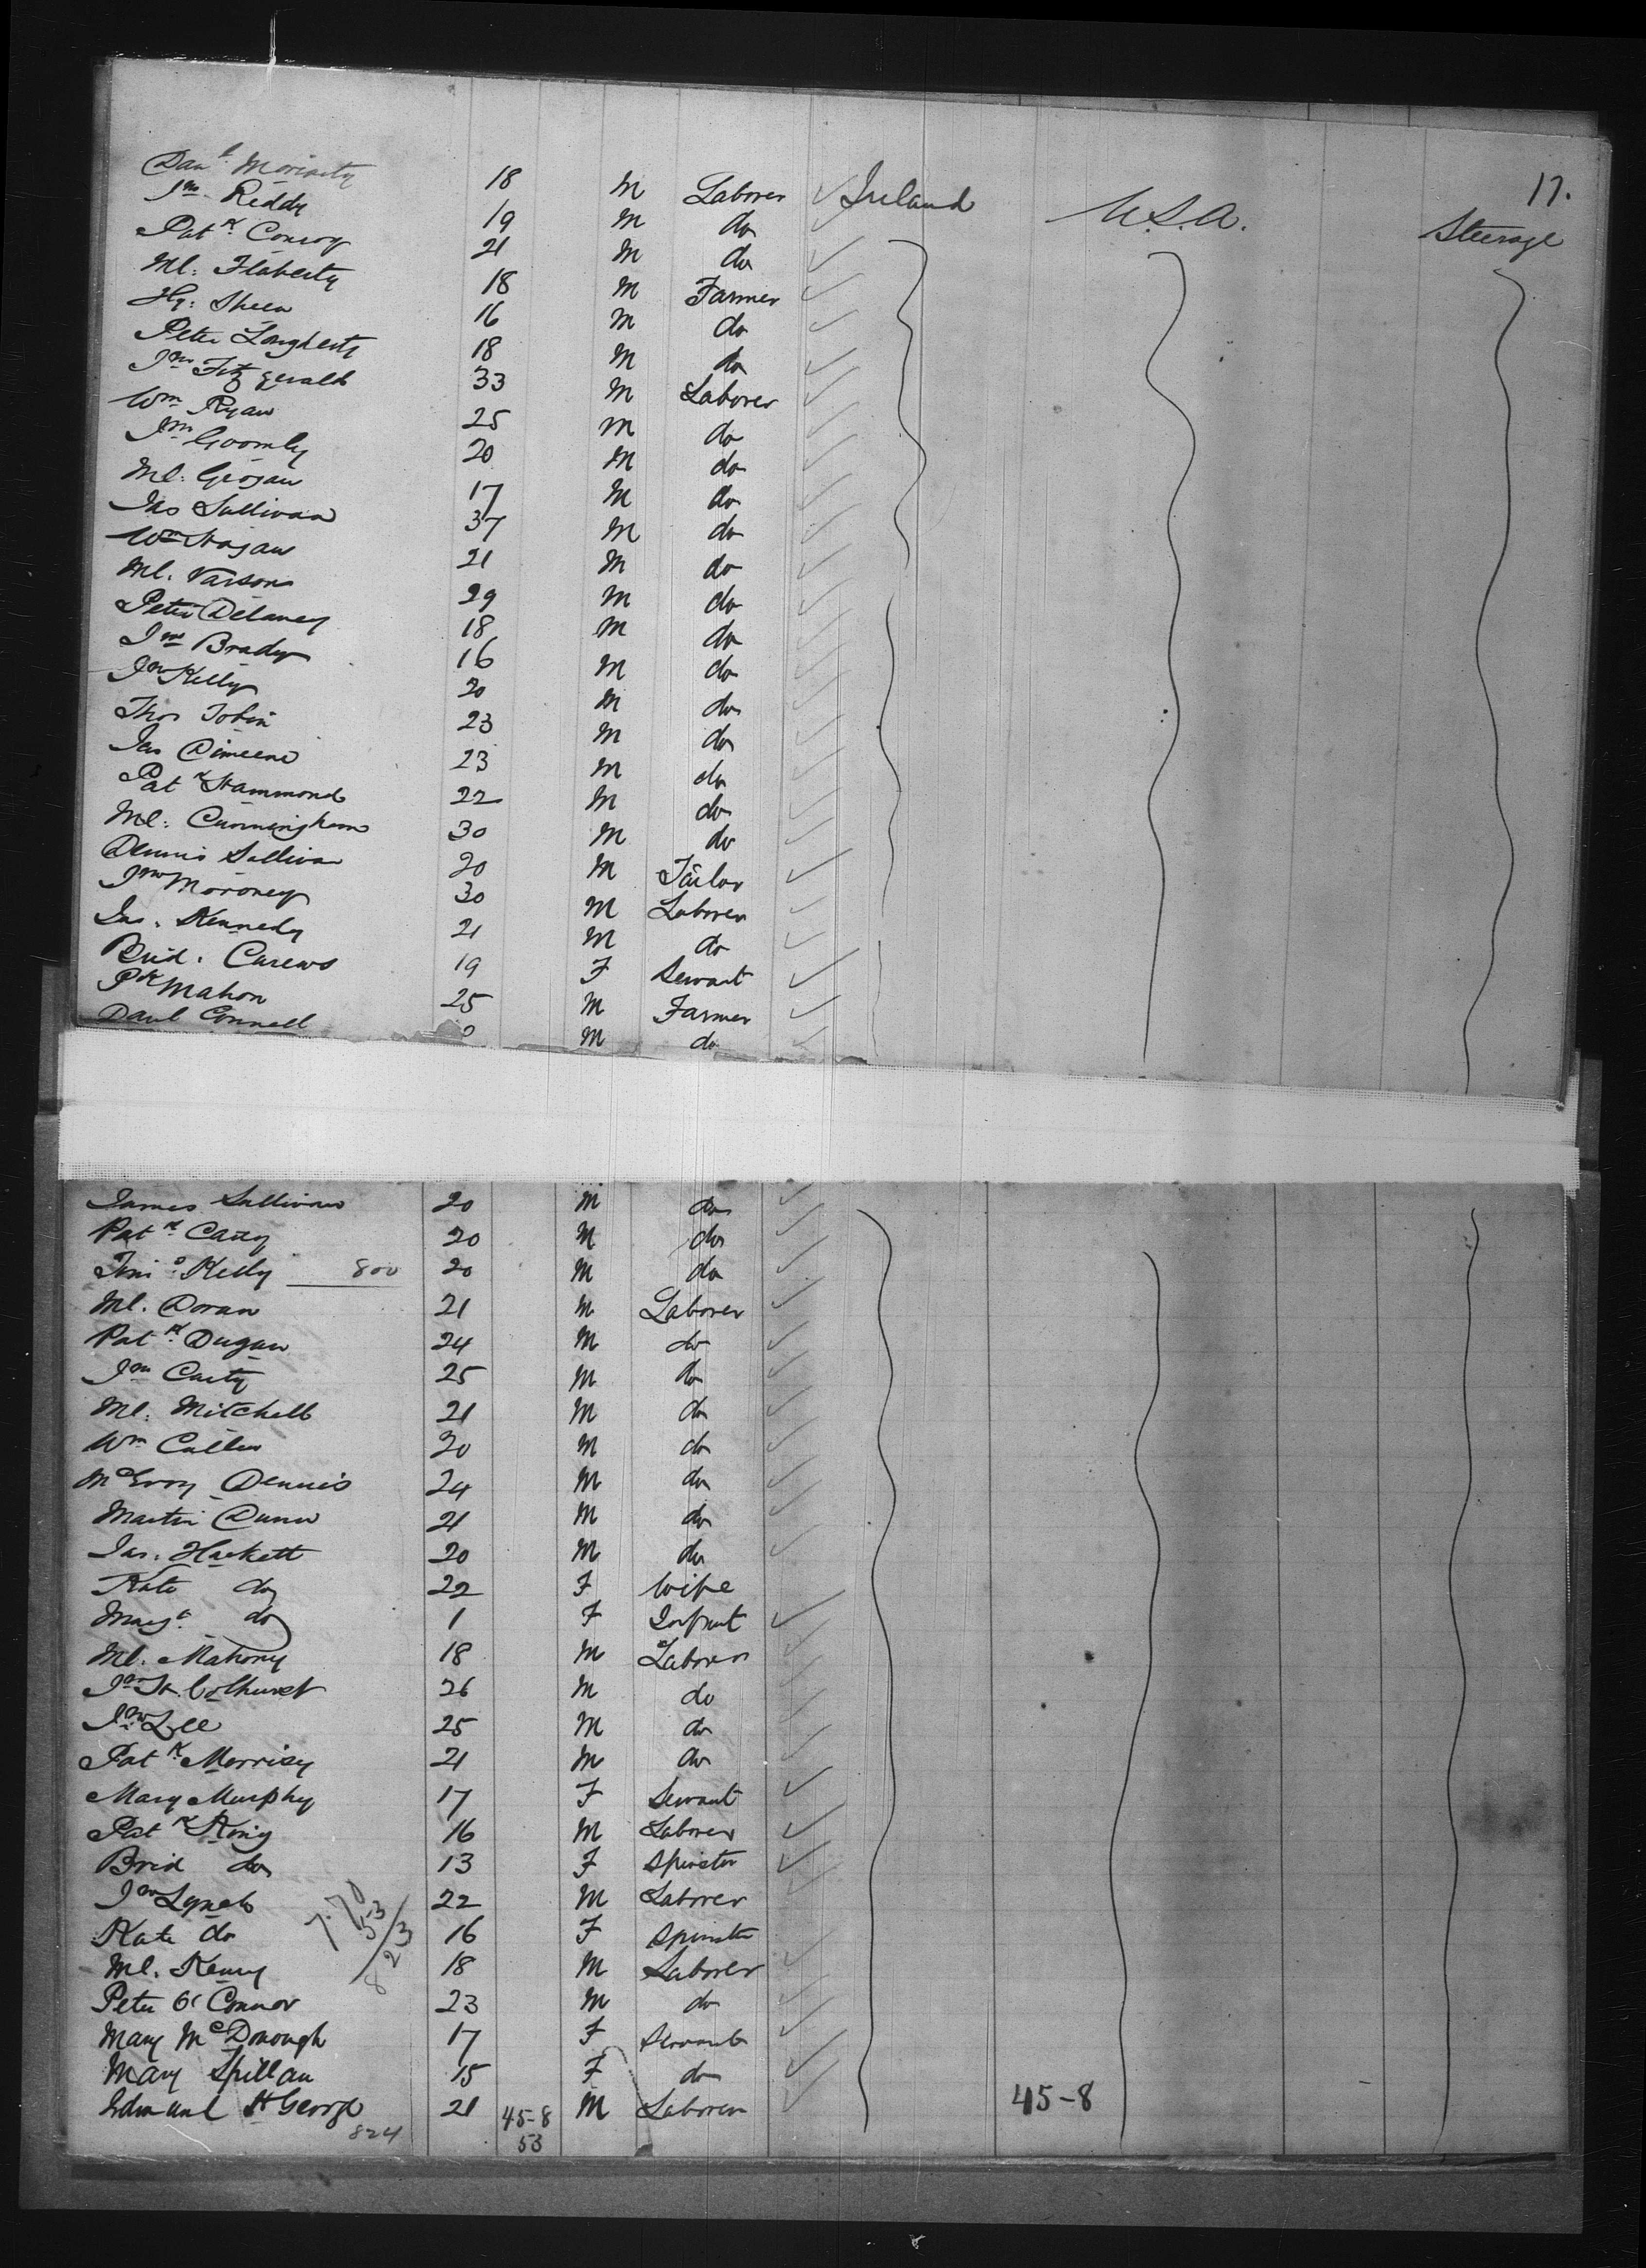 17.
Danl. Moriarty 18 M Laborer Ireland U.S.A. Steerage
Jno. Reddy 19 M do
Patk. Conroy 21 M do
Ml. Flaherty 18 M Farmer
Hy. Sheea 16 M do
Peter Lougherty 18 M do
Jno Fitzgerald 33 M Laborer
Wm Ryan 25 M do
Jno 20 M do
Ml. Grogan 17 M do
Jas Sullivan 37 M do
Wm Hogan 21 M do
Ml. Parsons 29 M do
Peter Delaney 18 M do
Jno Brady 16 M do
Jno Kelly 20 M do
Thos Tobin 23 M do
Jas 23 M do
Patk Hammond 22 M do
Ml. Cunningham 30 M do
Dennis Sullivan 20 M Tailor
Jno Moroney 30 M Laborer
Jas. Kennedy 21 M do
Brid. Carews 19 F Servant
Pk Mahon 25 M Farmer
Danl Connell M do
James Sullivan 20 M do
Patk. 20 M do
Kelly 800 20 M do
Ml. Doran 21 M Laborer
Patk. Dugan 24 M do
Jno Carty 25 M do
Ml. Mitchell 21 M do
Wm Cullen 20 M do
McEvoy Dennis 24 M do
Martin Dunn 21 M do
Jas. Hackett 20 M do
Kate do 22 F Wife
Margt. do 1 F Infant
Ml. Mahony 18 M Laborer
Jno H. Colhurst 26 M do
Jno Lee 25 M do
Patk. Morrisy 21 M do
Mary Murphy 17 F Servant
Patk King 16 M Laborer
Brid do 13 F Spinster
Jno Lynch 22 M Laborer
7.70
53
823
Kate do 16 F Spinster
Ml. Kenny 18 M Laborer
Peter O'Connor 23 M do
Mary McDonough 17 F Servant
Mary Spillan 15 F do
Edmund St George 21 45-8 M Laborer 45-8
824 53